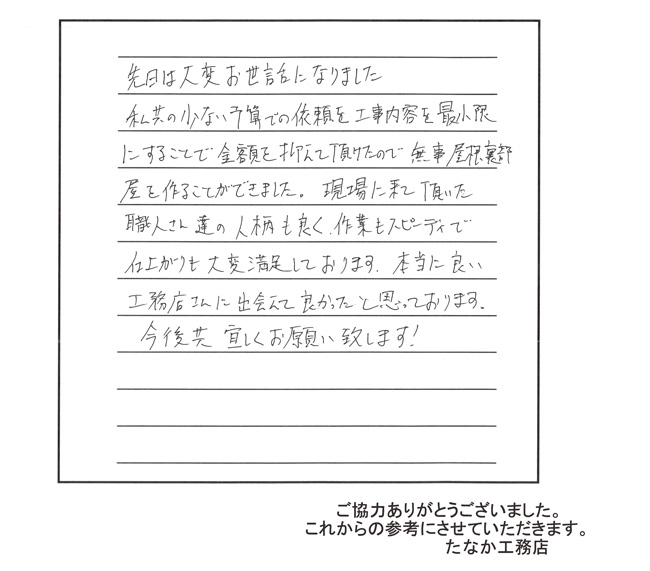 先日は大変お世話になりました
私共の少ない予算での依頼を工事内容を最小限
にすることで金額を抑えて頂けたので無事屋根裏部
屋を作ることができました。現場に来て頂いた
職人さん達の人柄も良く、作業もスピーディで
仕上がりも大変満足しております。本当に良い
工務店さんに出会えて良かったと思っております。
今後共宜しくお願い致します!
ご協力ありがとうございました。
これからの参考にさせていただきます。
たなか工務店